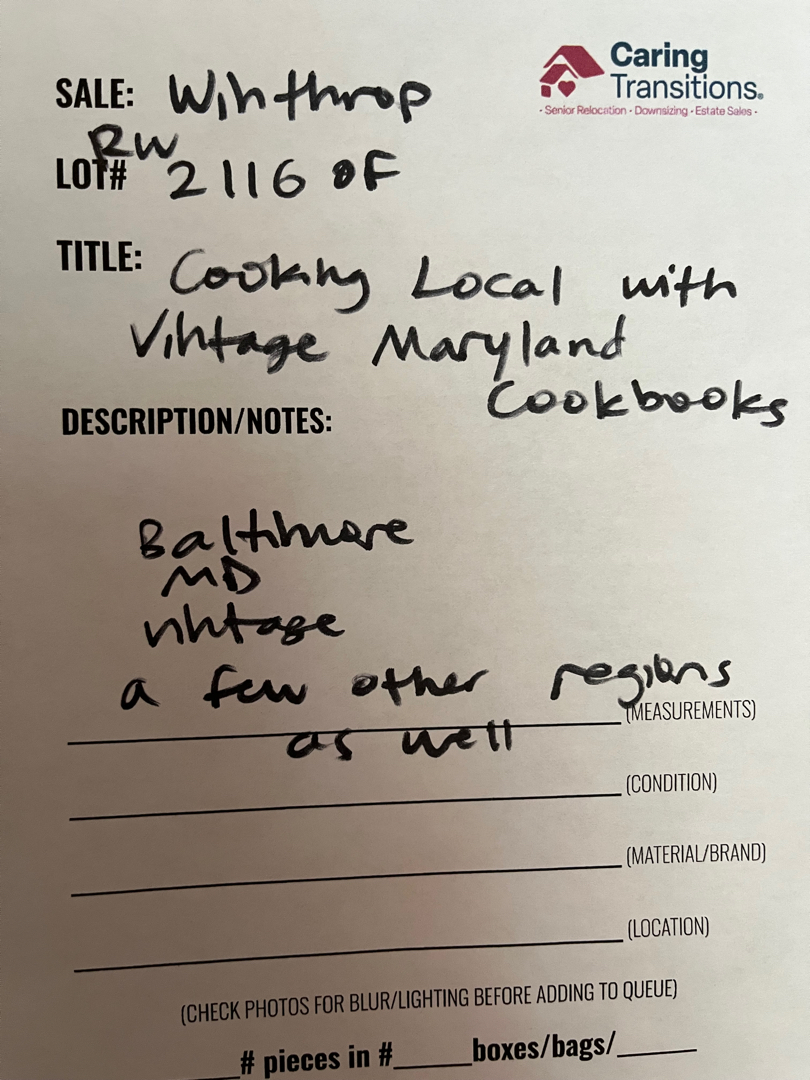 Caring
Transitions®
· Senior Relocation · Downsizing · Estate Sales ·
SALE: Winthrop
RW
LOT# 2116 OF
TITLE: Cooking Local with
Vintage Maryland
Cookbooks
DESCRIPTION/NOTES:
Baltimore
MD
vintage
a few other regions
(MEASUREMENTS)
as well
(CONDITION)
(MATERIAL/BRAND)
(LOCATION)
(CHECK PHOTOS FOR BLUR/LIGHTING BEFORE ADDING TO QUEUE)
____# pieces in #_____boxes/bags/_____